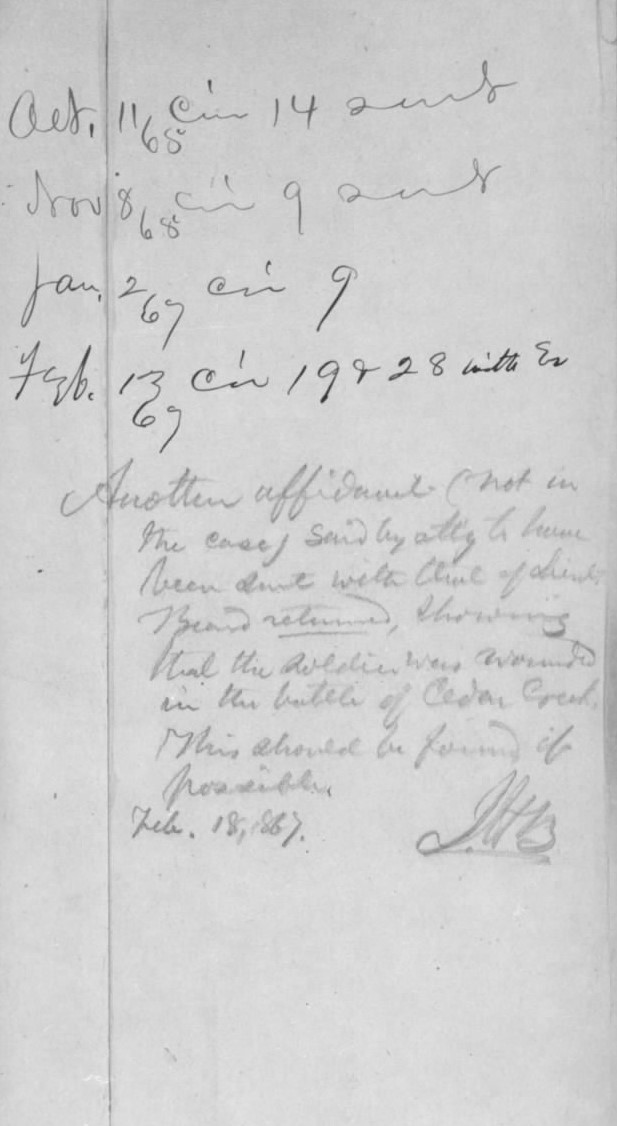 Oct. 11/65 Cir 14 sent
Nov 8/65 cir 9 sent
Jan. 2/67 cir 9
Feb. 13/67 Cir 19 & 28 with En
Another affidavit (not in
the case) said by atty to have
been sent with that of Lieut.
Beard returned, showing
that the soldier was wounded
in the battle of Cedar Creek.
This should be found if
possible.
Feb. 18, 867. J.H.B